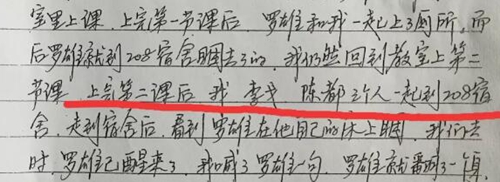 室里上课，上完第一节课后，罗雄和我一起上了厕所，而
后罗雄就到208宿舍睡去了的，我们然回到教室上第二
节课，上完第二课后，我 李戈 陈都三个人一起到208宿
舍，走到宿舍后，看到罗雄在他自己的床上睡，我们去
时，罗雄已醒来了，我喊了罗雄一句，罗雄就翻了一